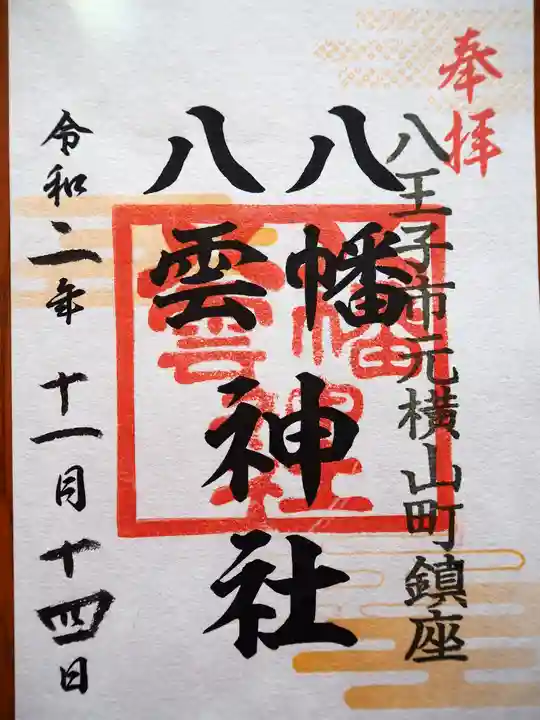 奉拝
八王子市元横山町鎮座
八幡
八雲
神社
令和二年 十一月 十四日